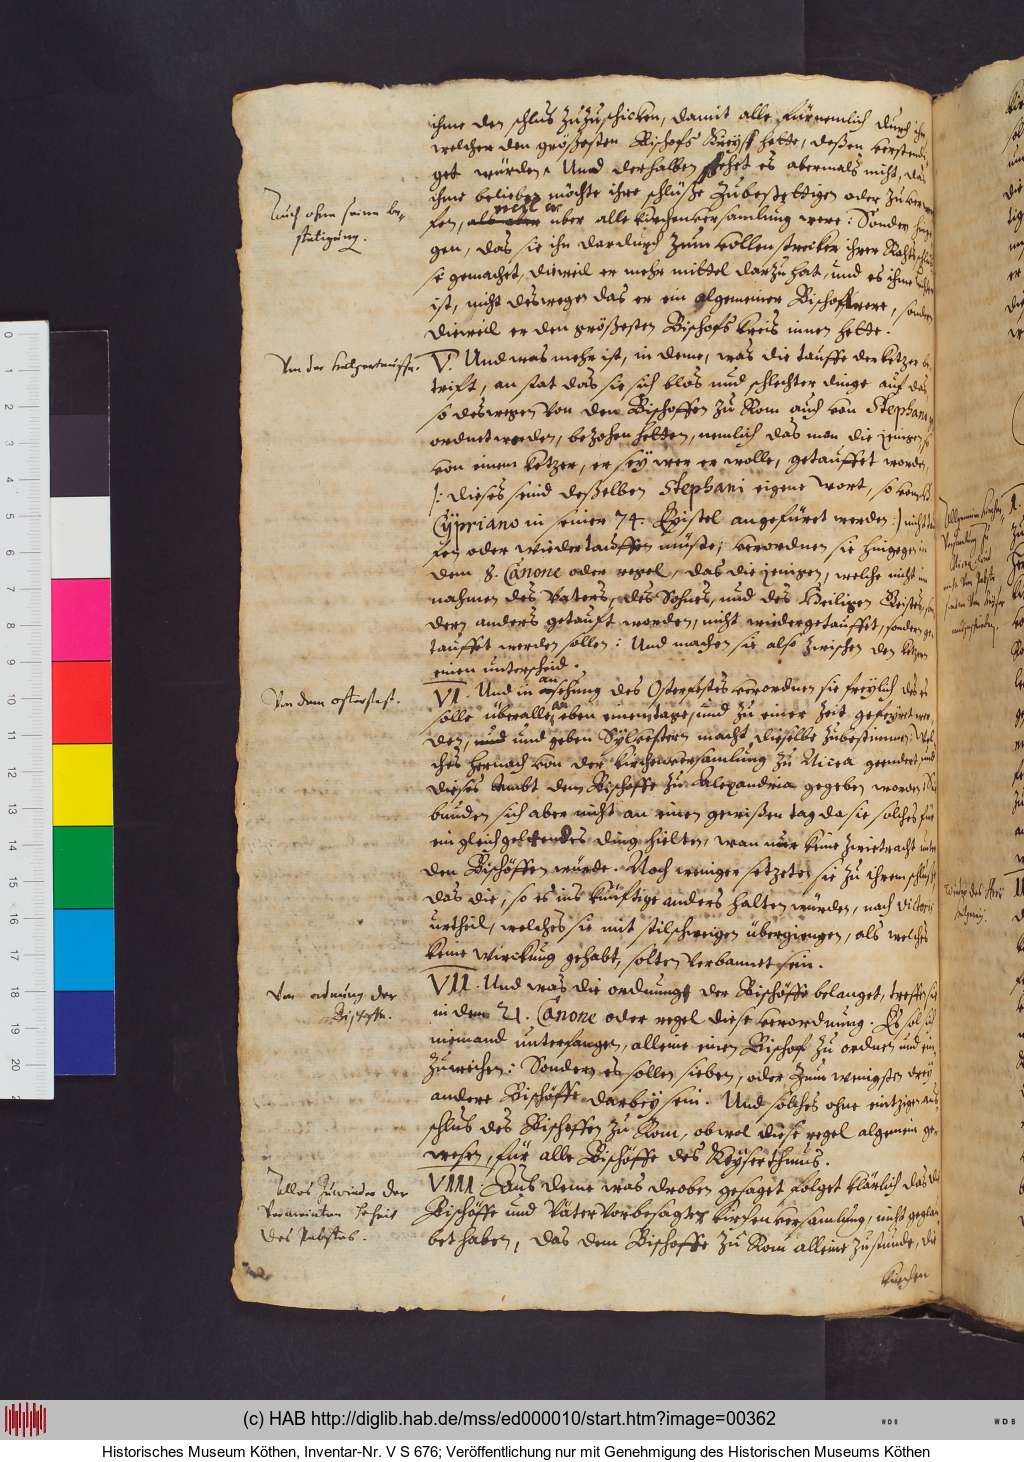 ihme den schlus zuzuschicken, damit alle fürnemlich durch ihn
welcher den größesten Bischofs Kreyß hette, deßen verstendi-
get würden. Und derhalben stehet es abermals nicht, das
ihme belieben möchte ihre schlüße zubestettigen oder zu
fen, als über alle kirchenversamlung were: Sondern
gen, das sie ihn dardurch zum vollenstrecker ihrer
se gemachet, dieweil er mehr mittel darzu hat, und es ihme
ist, nicht deswegen das er ein algemeiner Bischoff were, sondern
dieweil er den größesten Bischofs kreis innen hette.
Auch ohne seine be-
stetigung.
Von der ketzertauffe.
V. Und was mehr ist, in deme, was die tauffe der ketzer be-
trift, an stat das sie sich blos und schlechter dinge auf das
so deswegen von den Bischoffen zu Rom auch von Stephano
ordnet worden, bezohen hetten, nemlich das man die jenigen so
von einem ketzer, er sey wer er wolle, getauffet worden,
/: dieses seind deßelben Stephani eigene wort, so vom
Cypriano in seiner 74. Epistel angefüret werden :/ nicht
fen oder wiedertauffen müste; verordnen sie hingegen in
dem 8. Canone oder regel, das die jenigen, welche nicht im
nahmen des Vaters, des Sohnes, und des Heiligen Geistes, son-
dern anders getauft worden, nicht wiedergetauffet, sondern ge-
tauffet werden sollen: Und machen sie also zwischen den ketzern
einen unterscheid.
Von dem osterfest.
VI. Und in ansehung des Osterfestes verordnen sie freylich das es
solle überalle, an eben einem tage, und zu einer Zeit gefeyret wer-
den, und geben Sylvestern macht dieselbe zubestimmen: Wel-
ches hernach von der kirchenversamlung zu Nicea geendert, und
dieses Ambt dem Bischoffe zu Alexandria gegeben worden: Sie
bunden sich aber nicht an einen gewißen tag da sie solches für
ein gleichgeltendes ding hielten, wan nur keine zwietracht unter
den Bischöffen würde. Noch weniger setzeten sie zu ihrem schluße,
das die, so es ins künftige anders halten würden, nach Victoris
urtheil, welches sie mit stilschweigen übergiengen, als welches
keine wirckung gehabt, solten verbannet sein.
Von ordnung der
Bischoffe.
VII. Und was die ordnung der Bischöffe belanget, treffen sie
in dem 21. Canone oder regel diese verordnung. Es sol sich
niemand unterfangen, alleine einen Bischof zu ordnen und ein-
zuweihen: Sondern es sollen sieben, oder zum wenigsten drey
andere Bischöffe darbey sein. Und solches ohne eintzigen aus-
schlus des Bischoffen zu Rom, ob wol diese regel algemein ge-
wesen, für alle Bischöffe des Keyserthums.
Alles zuwieder der
vermeinten hoheit
des Pabstes.
VIII. Aus deme was droben gesaget folget klärlich das die
Bischöffe und Väter vorbesagter kirchenversamlung, nicht geglau-
bet haben, das dem Bischoffe zu Rom alleine zustunde, die
kirchen
(c) HAB http://diglib.hab.de/mss/ed000010/start.htm?image=00362
Historisches Museum Köthen, Inventar-Nr. V S 676; Veröffentlichung nur mit Genehmigung des Historischen Museums Köthen